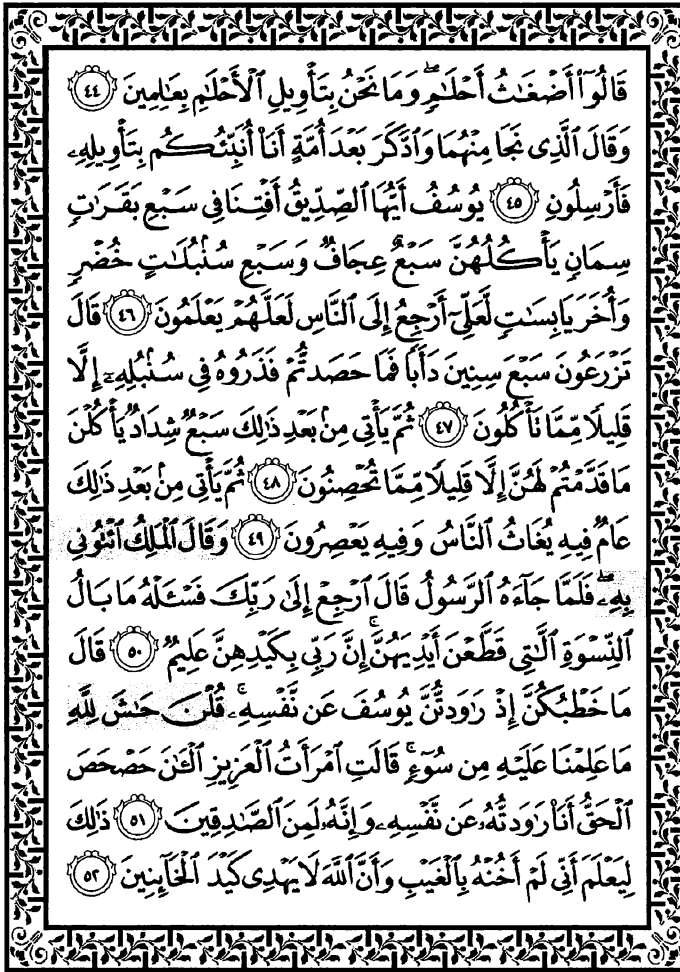 قَالُوٓاْ أَضۡغَٰثُ أَحۡلَٰمٖۖ وَمَا نَحۡنُ بِتَأۡوِيلِ ٱلۡأَحۡلَٰمِ بِعَٰلِمِينَ ٤٤
وَقَالَ ٱلَّذِي نَجَا مِنۡهُمَا وَٱدَّكَرَ بَعۡدَ أُمَّةٍ أَنَا۠ أُنَبِّئُكُم بِتَأۡوِيلِهِۦ
فَأَرۡسِلُونِ ٤٥ يُوسُفُ أَيُّهَا ٱلصِّدِّيقُ أَفۡتِنَا فِي سَبۡعِ بَقَرَٰتٖ
سِمَانٖ يَأۡكُلُهُنَّ سَبۡعٌ عِجَافٞ وَسَبۡعِ سُنۢبُلَٰتٍ خُضۡرٖ
وَأُخَرَ يَابِسَٰتٖ لَّعَلِّيٓ أَرۡجِعُ إِلَى ٱلنَّاسِ لَعَلَّهُمۡ يَعۡلَمُونَ ٤٦ قَالَ
تَزۡرَعُونَ سَبۡعَ سِنِينَ دَأَبٗا فَمَا حَصَدتُّمۡ فَذَرُوهُ فِي سُنۢبُلِهِۦٓ إِلَّا
قَلِيلٗا مِّمَّا تَأۡكُلُونَ ٤٧ ثُمَّ يَأۡتِي مِنۢ بَعۡدِ ذَٰلِكَ سَبۡعٞ شِدَادٞ يَأۡكُلۡنَ
مَا قَدَّمۡتُمۡ لَهُنَّ إِلَّا قَلِيلٗا مِّمَّا تُحۡصِنُونَ ٤٨ ثُمَّ يَأۡتِي مِنۢ بَعۡدِ ذَٰلِكَ
عَامٞ فِيهِ يُغَاثُ ٱلنَّاسُ وَفِيهِ يَعۡصِرُونَ ٤٩ وَقَالَ ٱلۡمَلِكُ ٱئۡتُونِي
بِهِۦۖ فَلَمَّا جَآءَهُ ٱلرَّسُولُ قَالَ ٱرۡجِعۡ إِلَىٰ رَبِّكَ فَسۡـَٔلۡهُ مَا بَالُ
ٱلنِّسۡوَةِ ٱلَّٰتِي قَطَّعۡنَ أَيۡدِيَهُنَّۚ إِنَّ رَبِّي بِكَيۡدِهِنَّ عَلِيمٞ ٥٠ قَالَ
مَا خَطۡبُكُنَّ إِذۡ رَٰوَدتُّنَّ يُوسُفَ عَن نَّفۡسِهِۦۚ قُلۡنَ حَٰشَ لِلَّهِ
مَا عَلِمۡنَا عَلَيۡهِ مِن سُوٓءٖۚ قَالَتِ ٱمۡرَأَتُ ٱلۡعَزِيزِ ٱلۡـَٰٔنَ حَصۡحَصَ
ٱلۡحَقُّ أَنَا۠ رَٰوَدتُّهُۥ عَن نَّفۡسِهِۦ وَإِنَّهُۥ لَمِنَ ٱلصَّٰدِقِينَ ٥١ ذَٰلِكَ
لِيَعۡلَمَ أَنِّي لَمۡ أَخُنۡهُ بِٱلۡغَيۡبِ وَأَنَّ ٱللَّهَ لَا يَهۡدِي كَيۡدَ ٱلۡخَآئِنِينَ ٥٢